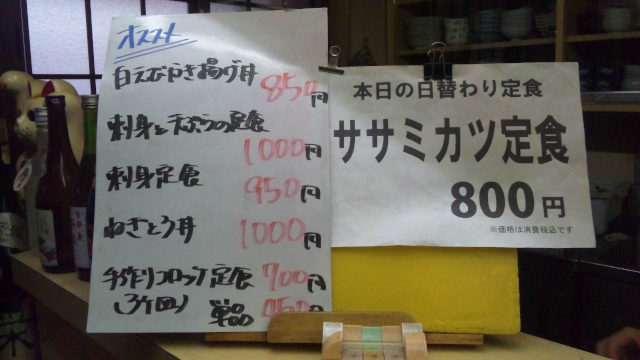 オススメ
白えびかき揚げ丼 850円
刺身と天ぷらの定食
1000円
刺身定食 950円
ねぎとろ丼 1000円
手作りコロッケ定食 700円
(3ヶ回) 単品 450円
本日の日替わり定食
ササミカツ定食
800円
※価格は消費税込です